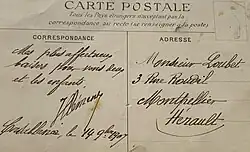 CARTE POSTALE
Tous les Pays étrangers n'acceptent pas la
correspondance au recto (se renseigner à la poste)
CORRESPONDANCE
ADRESSE
Mes plus affectueux
baisers pour vous deux
et les enfants.
le 24 9bre 1907
Monsieur Loubet
3 Rue Rondil
Montpellier
Hérault